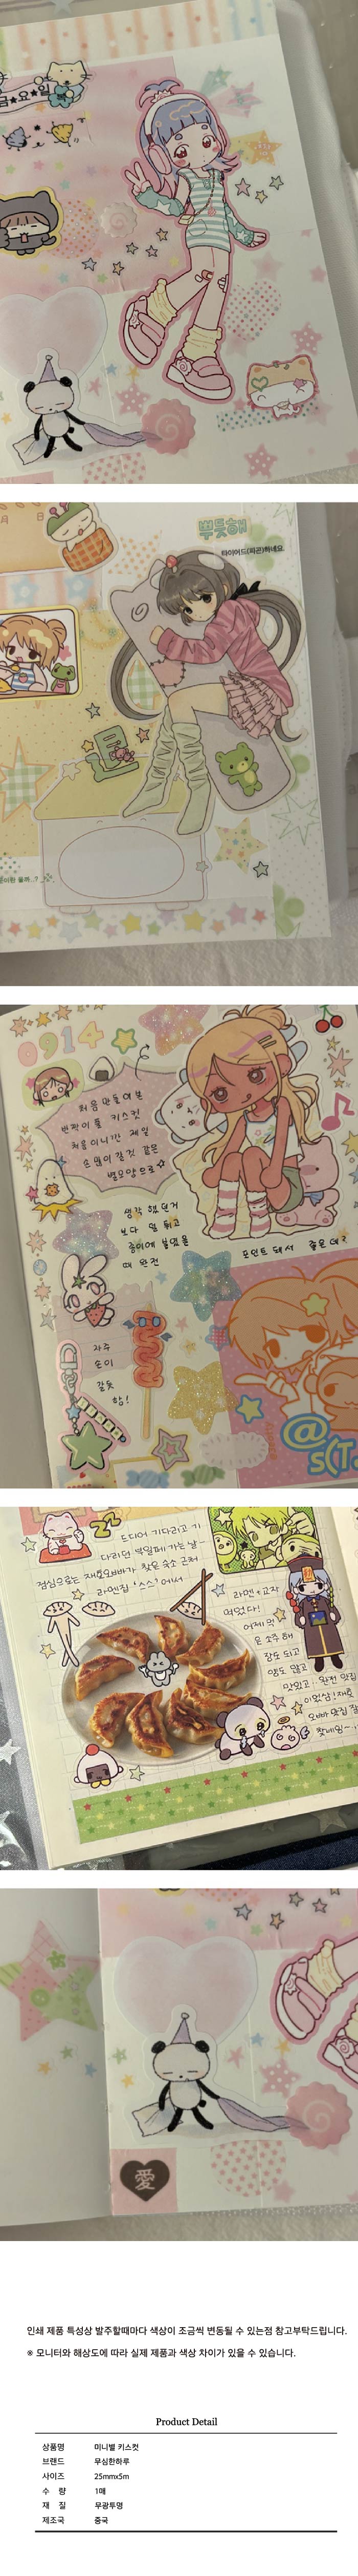 금★요일
月 日
뿌듯해
타이어드(피곤)하네요
0914
처음 만들어본
반짝이 풀 키스컷
처음이니깐 제일
손 많이 갈것 같은
별모양으로☆
생각 했던거
보다 덜 튀고
종이에 붙였을
때 완전
포인트 돼서 좋은데?
자주
손이
갈듯
함!
@
드디어 기다리고 기
다리던 박일페 가는 날~
점심으로는 재호오빠가 찾은 숙소 근처
라멘집 '스스' 에서
라멘+교자
먹었다!
어제 먹
은 소주 해
장도 되고
양도 많고
맛있고 완전 맛집
이었심! 재호
오빠 맛집 잘
찾네잉~
愛
인쇄 제품 특성상 발주할때마다 색상이 조금씩 변동될 수 있는점 참고부탁드립니다.
※ 모니터와 해상도에 따라 실제 제품과 색상 차이가 있을 수 있습니다.
Product Detail
상품명 미니별 키스컷
브랜드 무심한하루
사이즈 25mmx5m
수 량 1매
재 질 무광투명
제조국 중국